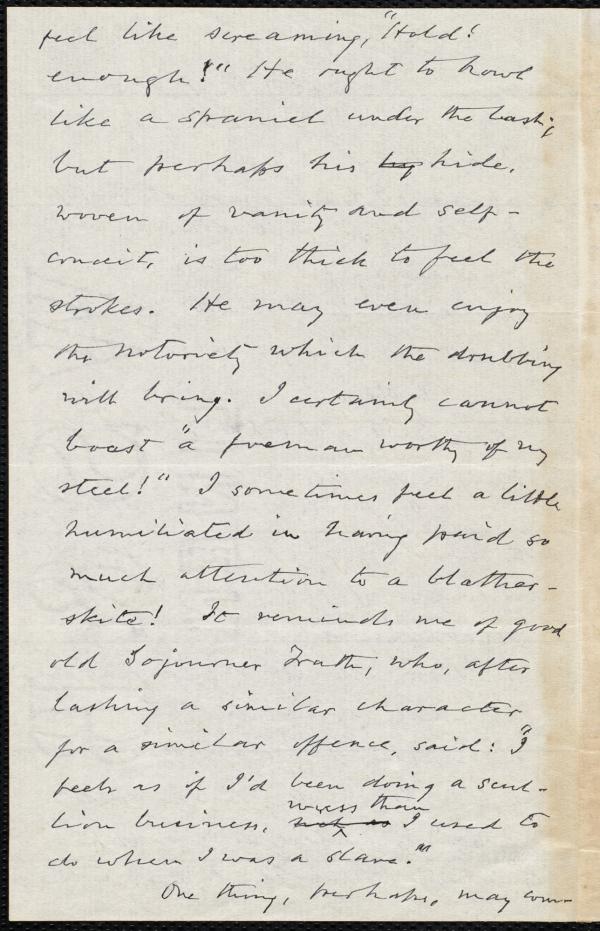 feel like screaming, "Hold!
enough!" He ought to howl
like a spaniel under the lash;
but perhaps his hide,
woven of vanity and self-
conceit, is too thick to feel the
strokes. He may even enjoy
the notoriety which the drubbing
will bring. I certainly cannot
boast "a foeman worthy of my
steel!" I sometimes feel a little
humiliated in having paid so
much attention to a blather-
skite! It reminds me of good
old Sojourner Truth, who, after
lashing a similar character
for a similar offence, said: "I
feels as if I'd been doing a scul-
lion business, wuss than
such as I used to
do when I was a slave."
One thing, perhaps, may com-